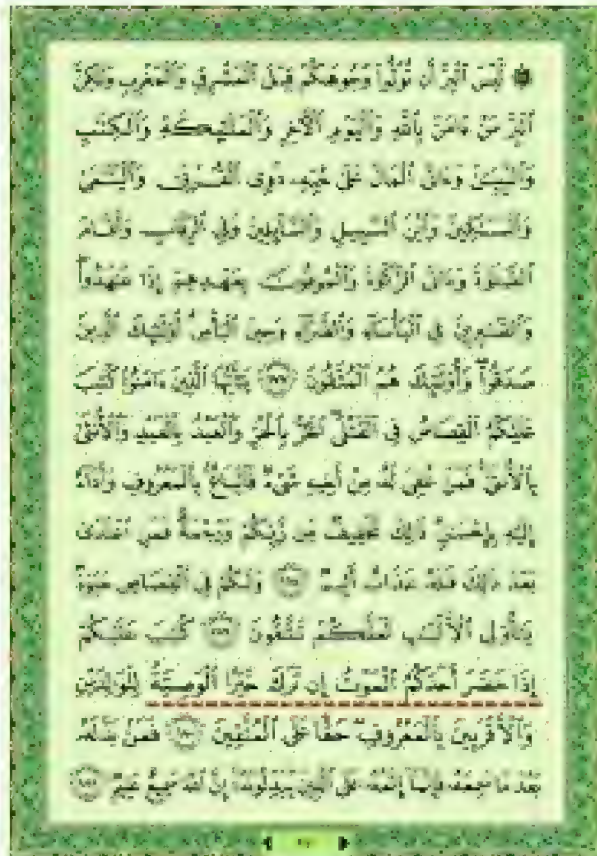 ۞ لَّيْسَ ٱلْبِرَّ أَن تُوَلُّوا۟ وُجُوهَكُمْ قِبَلَ ٱلْمَشْرِقِ وَٱلْمَغْرِبِ وَلَٰكِنَّ
ٱلْبِرَّ مَنْ ءَامَنَ بِٱللَّهِ وَٱلْيَوْمِ ٱلْءَاخِرِ وَٱلْمَلَٰٓئِكَةِ وَٱلْكِتَٰبِ
وَٱلنَّبِيِّۦنَ وَءَاتَى ٱلْمَالَ عَلَىٰ حُبِّهِۦ ذَوِى ٱلْقُرْبَىٰ وَٱلْيَتَٰمَىٰ
وَٱلْمَسَٰكِينَ وَٱبْنَ ٱلسَّبِيلِ وَٱلسَّآئِلِينَ وَفِى ٱلرِّقَابِ وَأَقَامَ
ٱلصَّلَوٰةَ وَءَاتَى ٱلزَّكَوٰةَ وَٱلْمُوفُونَ بِعَهْدِهِمْ إِذَا عَٰهَدُوا۟ۖ
وَٱلصَّٰبِرِينَ فِى ٱلْبَأْسَآءِ وَٱلضَّرَّآءِ وَحِينَ ٱلْبَأْسِۗ أُو۟لَٰٓئِكَ ٱلَّذِينَ
صَدَقُوا۟ۖ وَأُو۟لَٰٓئِكَ هُمُ ٱلْمُتَّقُونَ ١٧٧ يَٰٓأَيُّهَا ٱلَّذِينَ ءَامَنُوا۟ كُتِبَ
عَلَيْكُمُ ٱلْقِصَاصُ فِى ٱلْقَتْلَىۖ ٱلْحُرُّ بِٱلْحُرِّ وَٱلْعَبْدُ بِٱلْعَبْدِ وَٱلْأُنثَىٰ
بِٱلْأُنثَىٰۚ فَمَنْ عُفِىَ لَهُۥ مِنْ أَخِيهِ شَىْءٌ فَٱتِّبَاعٌۢ بِٱلْمَعْرُوفِ وَأَدَآءٌ
إِلَيْهِ بِإِحْسَٰنٍۗ ذَٰلِكَ تَخْفِيفٌ مِّن رَّبِّكُمْ وَرَحْمَةٌۗ فَمَنِ ٱعْتَدَىٰ
بَعْدَ ذَٰلِكَ فَلَهُۥ عَذَابٌ أَلِيمٌ ١٧٨ وَلَكُمْ فِى ٱلْقِصَاصِ حَيَوٰةٌ
يَٰٓأُو۟لِى ٱلْأَلْبَٰبِ لَعَلَّكُمْ تَتَّقُونَ ١٧٩ كُتِبَ عَلَيْكُمْ
إِذَا حَضَرَ أَحَدَكُمُ ٱلْمَوْتُ إِن تَرَكَ خَيْرًا ٱلْوَصِيَّةُ لِلْوَٰلِدَيْنِ
وَٱلْأَقْرَبِينَ بِٱلْمَعْرُوفِۖ حَقًّا عَلَى ٱلْمُتَّقِينَ ١٨٠ فَمَنۢ بَدَّلَهُۥ
بَعْدَ مَا سَمِعَهُۥ فَإِنَّمَآ إِثْمُهُۥ عَلَى ٱلَّذِينَ يُبَدِّلُونَهُۥٓۚ إِنَّ ٱللَّهَ سَمِيعٌ عَلِيمٌ ١٨١